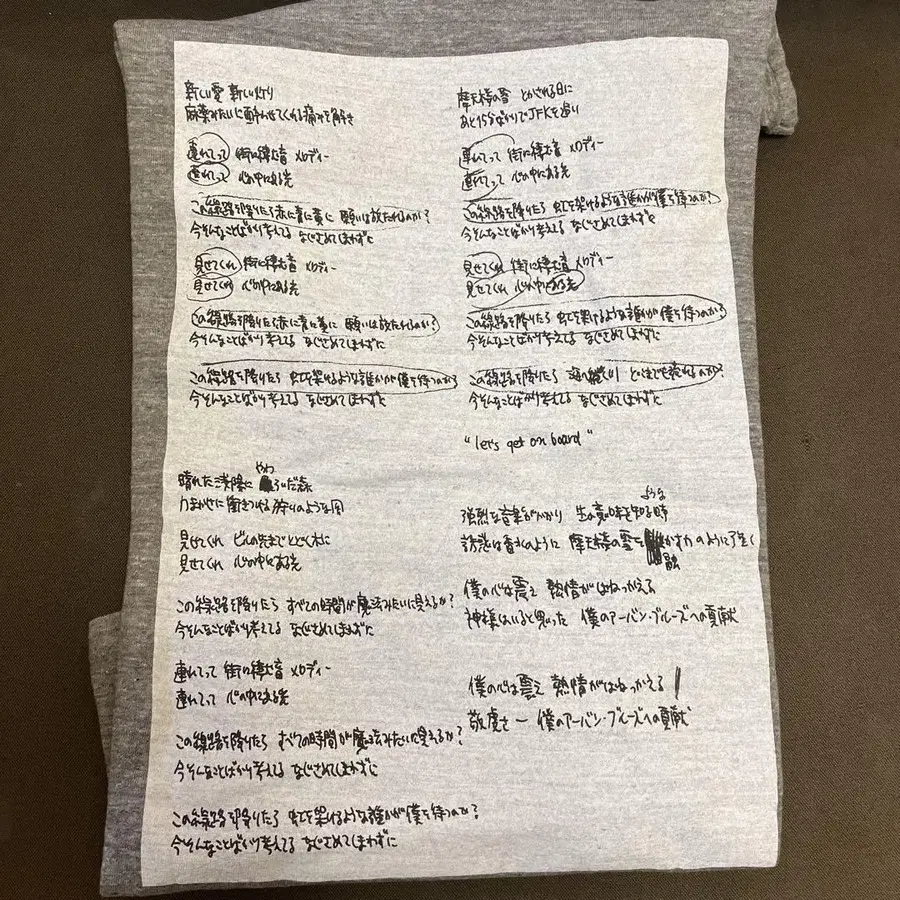 新しい愛 新しい灯り
麻薬みたいに酔わせてくれる痛みを解き
連れてって 街に棲む音 メロディー
連れてって 心の中にある光
この線路を降りたら赤に青に黄に 願いは放たれるのか?
今そんなことばかり考えてる なぐさめてしまわずに
見せてくれ 街に棲む音 メロディー
見せてくれ 心の中にある光
この線路を降りたら赤に青に黄に 願いは放たれるのか?
今そんなことばかり考えてる なぐさめてしまわずに
この線路を降りたら 虹を架けるような誰かが僕を待つのか?
今そんなことばかり考えてる なぐさめてしまわずに
やわ
晴れた浅瀬に らいだ森
力まかせに衝きつける狩りのような
見せてくれ ビルの先までとどく
見せてくれ 心の中にある光
この線路を降りたら すべての時間が魔法みたいに見えるか?
今そんなことばかり考えてる なぐさめてしまわずに
連れてって 街に棲む音 メロディー
連れてって 心の中にある光
この線路を降りたら すべての時間が魔法みたいに見えるか?
今そんなことばかり考えてる なぐさめてしまわずに
この線路を降りたら 虹を架けるような誰かが僕を待つのか?
今そんなことばかり考えてる なぐさめてしまわずに
摩天楼の雪 とかされる日に
あと15分ばかりでJFKを追い
連れてって 街に棲む音 メロディー
連れてって 心の中にある光
この線路を降りたら 虹を架けるような誰かが僕を待つのか?
今そんなことばかり考えてる なぐさめてしまわずに
見せてくれ 街に棲む音 メロディー
見せてくれ 心の中にある光
この線路を降りたら 虹を架けるような誰かが僕を待つのか?
今そんなことばかり考えてる なぐさめてしまわずに
この線路を降りたら 海へ続く川 どこまでも流れるのか?
今そんなことばかり考えてる なぐさめてしまわずに
"let's get on board"
ような
強烈な音楽がかかり 生の意味を知る時
誘惑は香水のように 摩天楼の雪を かすかのように
融
僕の心は震え 熱情がはねっかえる
神様はいると思った 僕のアーバン・ブルーズへの貢献
僕の心は震え 熱情がはねっかえる!
敬虔さ― 僕のアーバン・ブルーズへの貢献